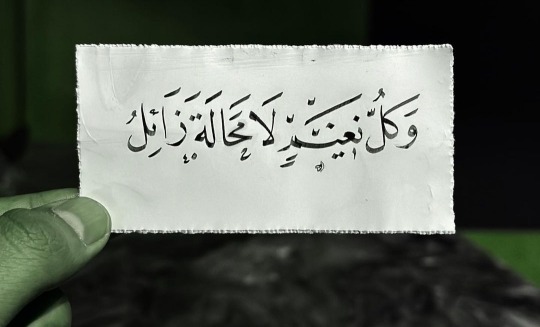 وَكُلُّ نَعِيْمٍ لَا مَحَالَةَ زَائِلُ